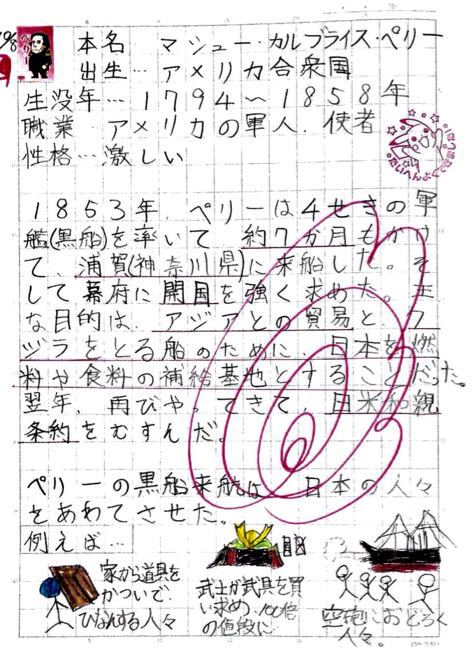 本名…マシュー・カルブライス・ペリー
出生…アメリカ合衆国
生没年…1794～1858年
職業…アメリカの軍人、使者
性格…激しい
1853年、ペリーは4せきの軍
艦(黒船)を率いて、約7か月もかけ
て、浦賀(神奈川県)に来船した。そ
して幕府に開国を強く求めた。主
な目的は、アジアとの貿易と、ク
ジラをとる船のために、日本を燃
料や食料の補給基地とすることだった。
翌年、再びやってきて、日米和親
条約をむすんだ。
ペリーの黒船来航は、日本の人々
をあわてさせた。
例えば…
家から道具を
かついで、
ひなんする人々
武士が武具を買
い求め、100倍
の値段に
空砲におどろく
人々。